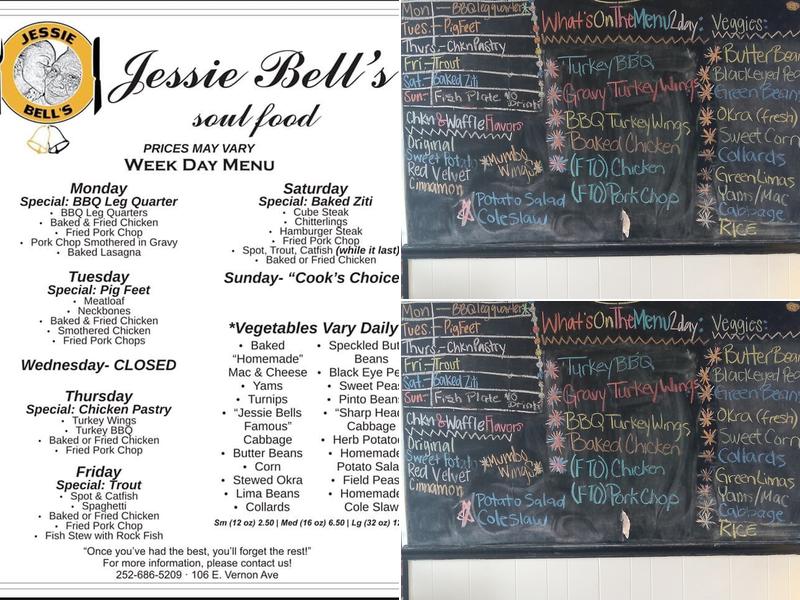 JESSIE
BELL'S
Jessie Bell's
soul food
PRICES MAY VARY
WEEK DAY MENU
Monday
Special: BBQ Leg Quarter
• BBQ Leg Quarters
• Baked & Fried Chicken
• Fried Pork Chop
• Pork Chop Smothered in Gravy
• Baked Lasagna
Tuesday
Special: Pig Feet
• Meatloaf
• Neckbones
• Baked & Fried Chicken
• Smothered Chicken
• Fried Pork Chops
Wednesday- CLOSED
Thursday
Special: Chicken Pastry
• Turkey Wings
• Turkey BBQ
• Baked or Fried Chicken
• Fried Pork Chop
Friday
Special: Trout
• Spot & Catfish
• Spaghetti
• Baked or Fried Chicken
• Fried Pork Chop
• Fish Stew with Rock Fish
Saturday
Special: Baked Ziti
• Cube Steak
• Chitterlings
• Hamburger Steak
• Fried Pork Chop
• Spot, Trout, Catfish (while it last)
• Baked or Fried Chicken
Sunday- “Cook’s Choice
*Vegetables Vary Daily
• Baked
“Homemade”
Mac & Cheese
• Yams
• Turnips
• “Jessie Bells
Famous”
Cabbage
• Butter Beans
• Corn
• Stewed Okra
• Lima Beans
• Collards
• Speckled But
Beans
• Black Eye Pe
• Sweet Peas
• Pinto Beans
• “Sharp Head
Cabbage
• Herb Potato
• Homemade
Potato Sala
• Field Peas
• Homemade
Cole Slaw
Sm (12 oz) 2.50 | Med (16 oz) 6.50 | Lg (32 oz) 1
“Once you’ve had the best, you’ll forget the rest!”
For more information, please contact us!
252-686-5209 · 106 E. Vernon Ave
Mon — BBQ leg quarter
Tues:- Pig Feet
Thurs:- Chkn Pastry
Fri - Trout
Sat: Baked Ziti
Sun:- Fish Plate NO Drink
Chkn & Waffle Flavors
Original
Sweet Potato
Red Velvet
Cinnamon
*Mumby
Wings*
Potato Salad
Cole Slaw
What's On The Menu 2day:
Turkey BBQ
Gravy Turkey Wings
BBQ Turkey Wings
Baked Chicken
(FTO) Chicken
(FTO) Pork Chop
Veggies:
Butter Bean
Blackeyed Pea
Green Bean
Okra (fresh)
Sweet Corn
Collards
Green Limas
Yams/Mac
Cabbage
RICE
Mon — BBQ leg quarter
Tues:- Pig Feet
Thurs:- Chkn Pastry
Fri - Trout
Sat: Baked Ziti
Sun:- Fish Plate NO Drink
Chkn & Waffle Flavors
Original
Sweet Potato
Red Velvet
Cinnamon
*Mumby
Wings*
Potato Salad
Cole Slaw
What's On The Menu 2day:
Turkey BBQ
Gravy Turkey Wings
BBQ Turkey Wings
Baked Chicken
(FTO) Chicken
(FTO) Pork Chop
Veggies:
Butter Bean
Blackeyed Pe
Green Bean
Okra (fresh)
Sweet Corn
Collards
Green Limas
Yams/Mac
Cabbage
RICE